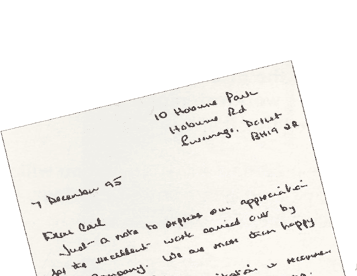 10 Hoburne Park
Hoburne Rd
Swanage, Dorset
BH19 2R
7 December 95
Dear Carl
Just a note to express our appreciation
for the excellent work carried out by
Company. We are more than happy
is recommen